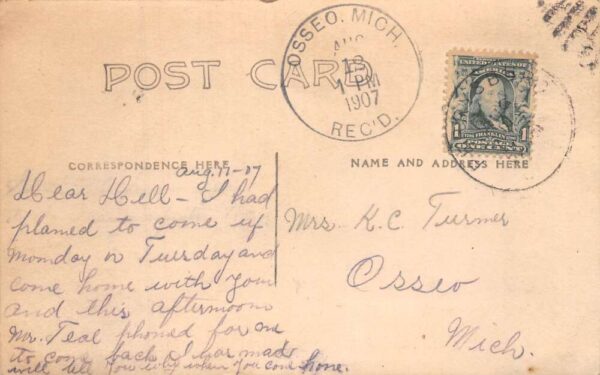 POST CARD
OSSEO, MICH.
AUG
13
1 PM
1907
REC'D.
UNITED STATES OF AMERICA
FRANKLIN
1 POSTAGE 1
ONE CENT
CORRESPONDENCE HERE
NAME AND ADDRESS HERE
Aug. 17-07
Dear Dell - I had
planed to come up
Monday or Tuesday and
come home with you
and this afternoon
Mr. Teal phoned for me
to come back
will tell you why when you come home.
Mrs. K.C. Turner
Osseo
Mich.